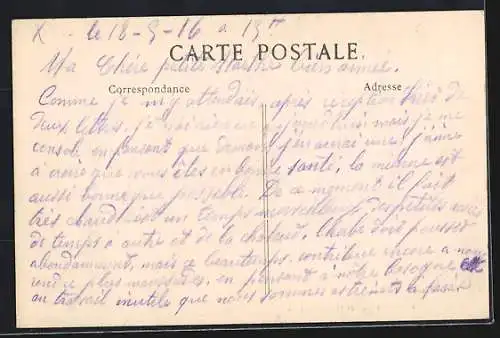 X le 18-9-16 a 19h
CARTE POSTALE
Ma Chère petite Marthe bien aimée.
Correspondance
Adresse
Comme je m'y attendais après réception hier de
deux lettres, je n'ai rien eu aujourd'hui mais je me
console en pensant que demain j'en aurai une, j'aime
à croire que vous êtes en bonne santé, la mienne est
aussi bonne que possible. En ce moment il fait
très chaud un temps merveilleux, des petites
de temps a autre et de la chaleur, doit pousser
abondamment, mais ce beau temps contribue encore a nous
rendre plus maussades, en pensant à notre besogne
au travail inutile que nous sommes astreints a faire